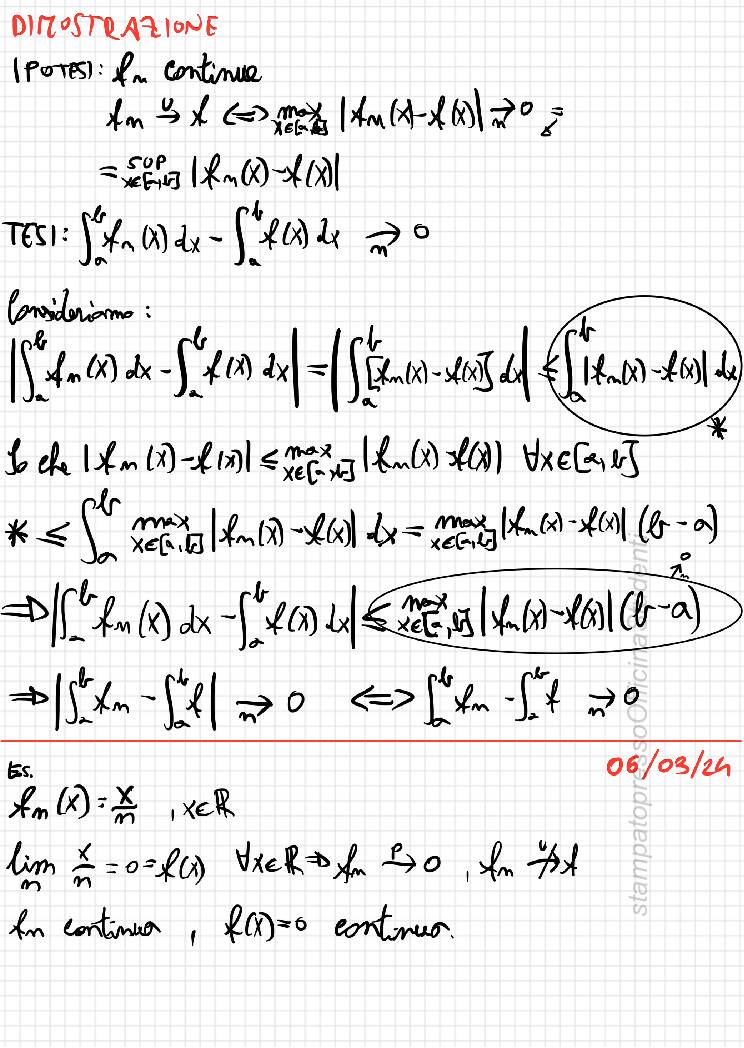 DIMOSTRAZIONE
IPOTESI: fₙ continue
fₙ →ᵁ f ⟺ max_{x∈[a,b]} |fₙ(x)-f(x)| →ₙ 0 =
= sup_{x∈[a,b]} |fₙ(x)-f(x)|
TESI: ∫ₐᵇ fₙ(x) dx - ∫ₐᵇ f(x) dx →ₙ 0
Consideriamo:
|∫ₐᵇ fₙ(x) dx - ∫ₐᵇ f(x) dx| = |∫ₐᵇ [fₙ(x)-f(x)] dx| ≤ ∫ₐᵇ |fₙ(x)-f(x)| dx
*
So che |fₙ(x)-f(x)| ≤ max_{x∈[a,b]} |fₙ(x)-f(x)| ∀x∈[a,b]
* ≤ ∫ₐᵇ max_{x∈[a,b]} |fₙ(x)-f(x)| dx = max_{x∈[a,b]} |fₙ(x)-f(x)| (b-a)
⇒ |∫ₐᵇ fₙ(x) dx - ∫ₐᵇ f(x) dx| ≤ max_{x∈[a,b]} |fₙ(x)-f(x)| (b-a) →ₙ 0
⇒ |∫ₐᵇ fₙ - ∫ₐᵇ f| →ₙ 0 ⟺ ∫ₐᵇ fₙ - ∫ₐᵇ f →ₙ 0
06/03/24
Es.
fₙ(x) = x/n , x∈ℝ
lim_n x/n = 0 = f(x) ∀x∈ℝ ⇒ fₙ →ᴾ 0 , fₙ ↛ᵁ f
fₙ continua , f(x)=0 continua.